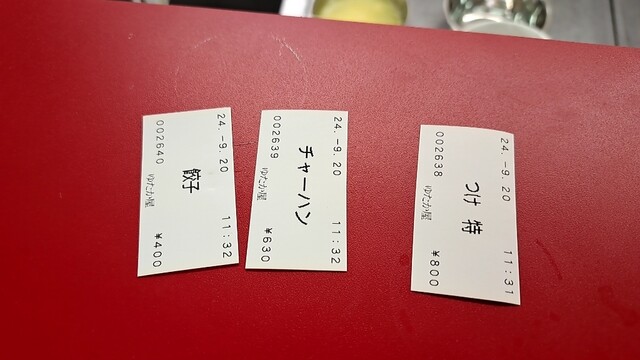 24.-9.20 11:32
餃子
002640 ゆたか屋 ¥400
24.-9.20 11:32
チャーハン
002639 ゆたか屋 ¥630
24.-9.20 11:31
つけ 特
002638 ゆたか屋 ¥800